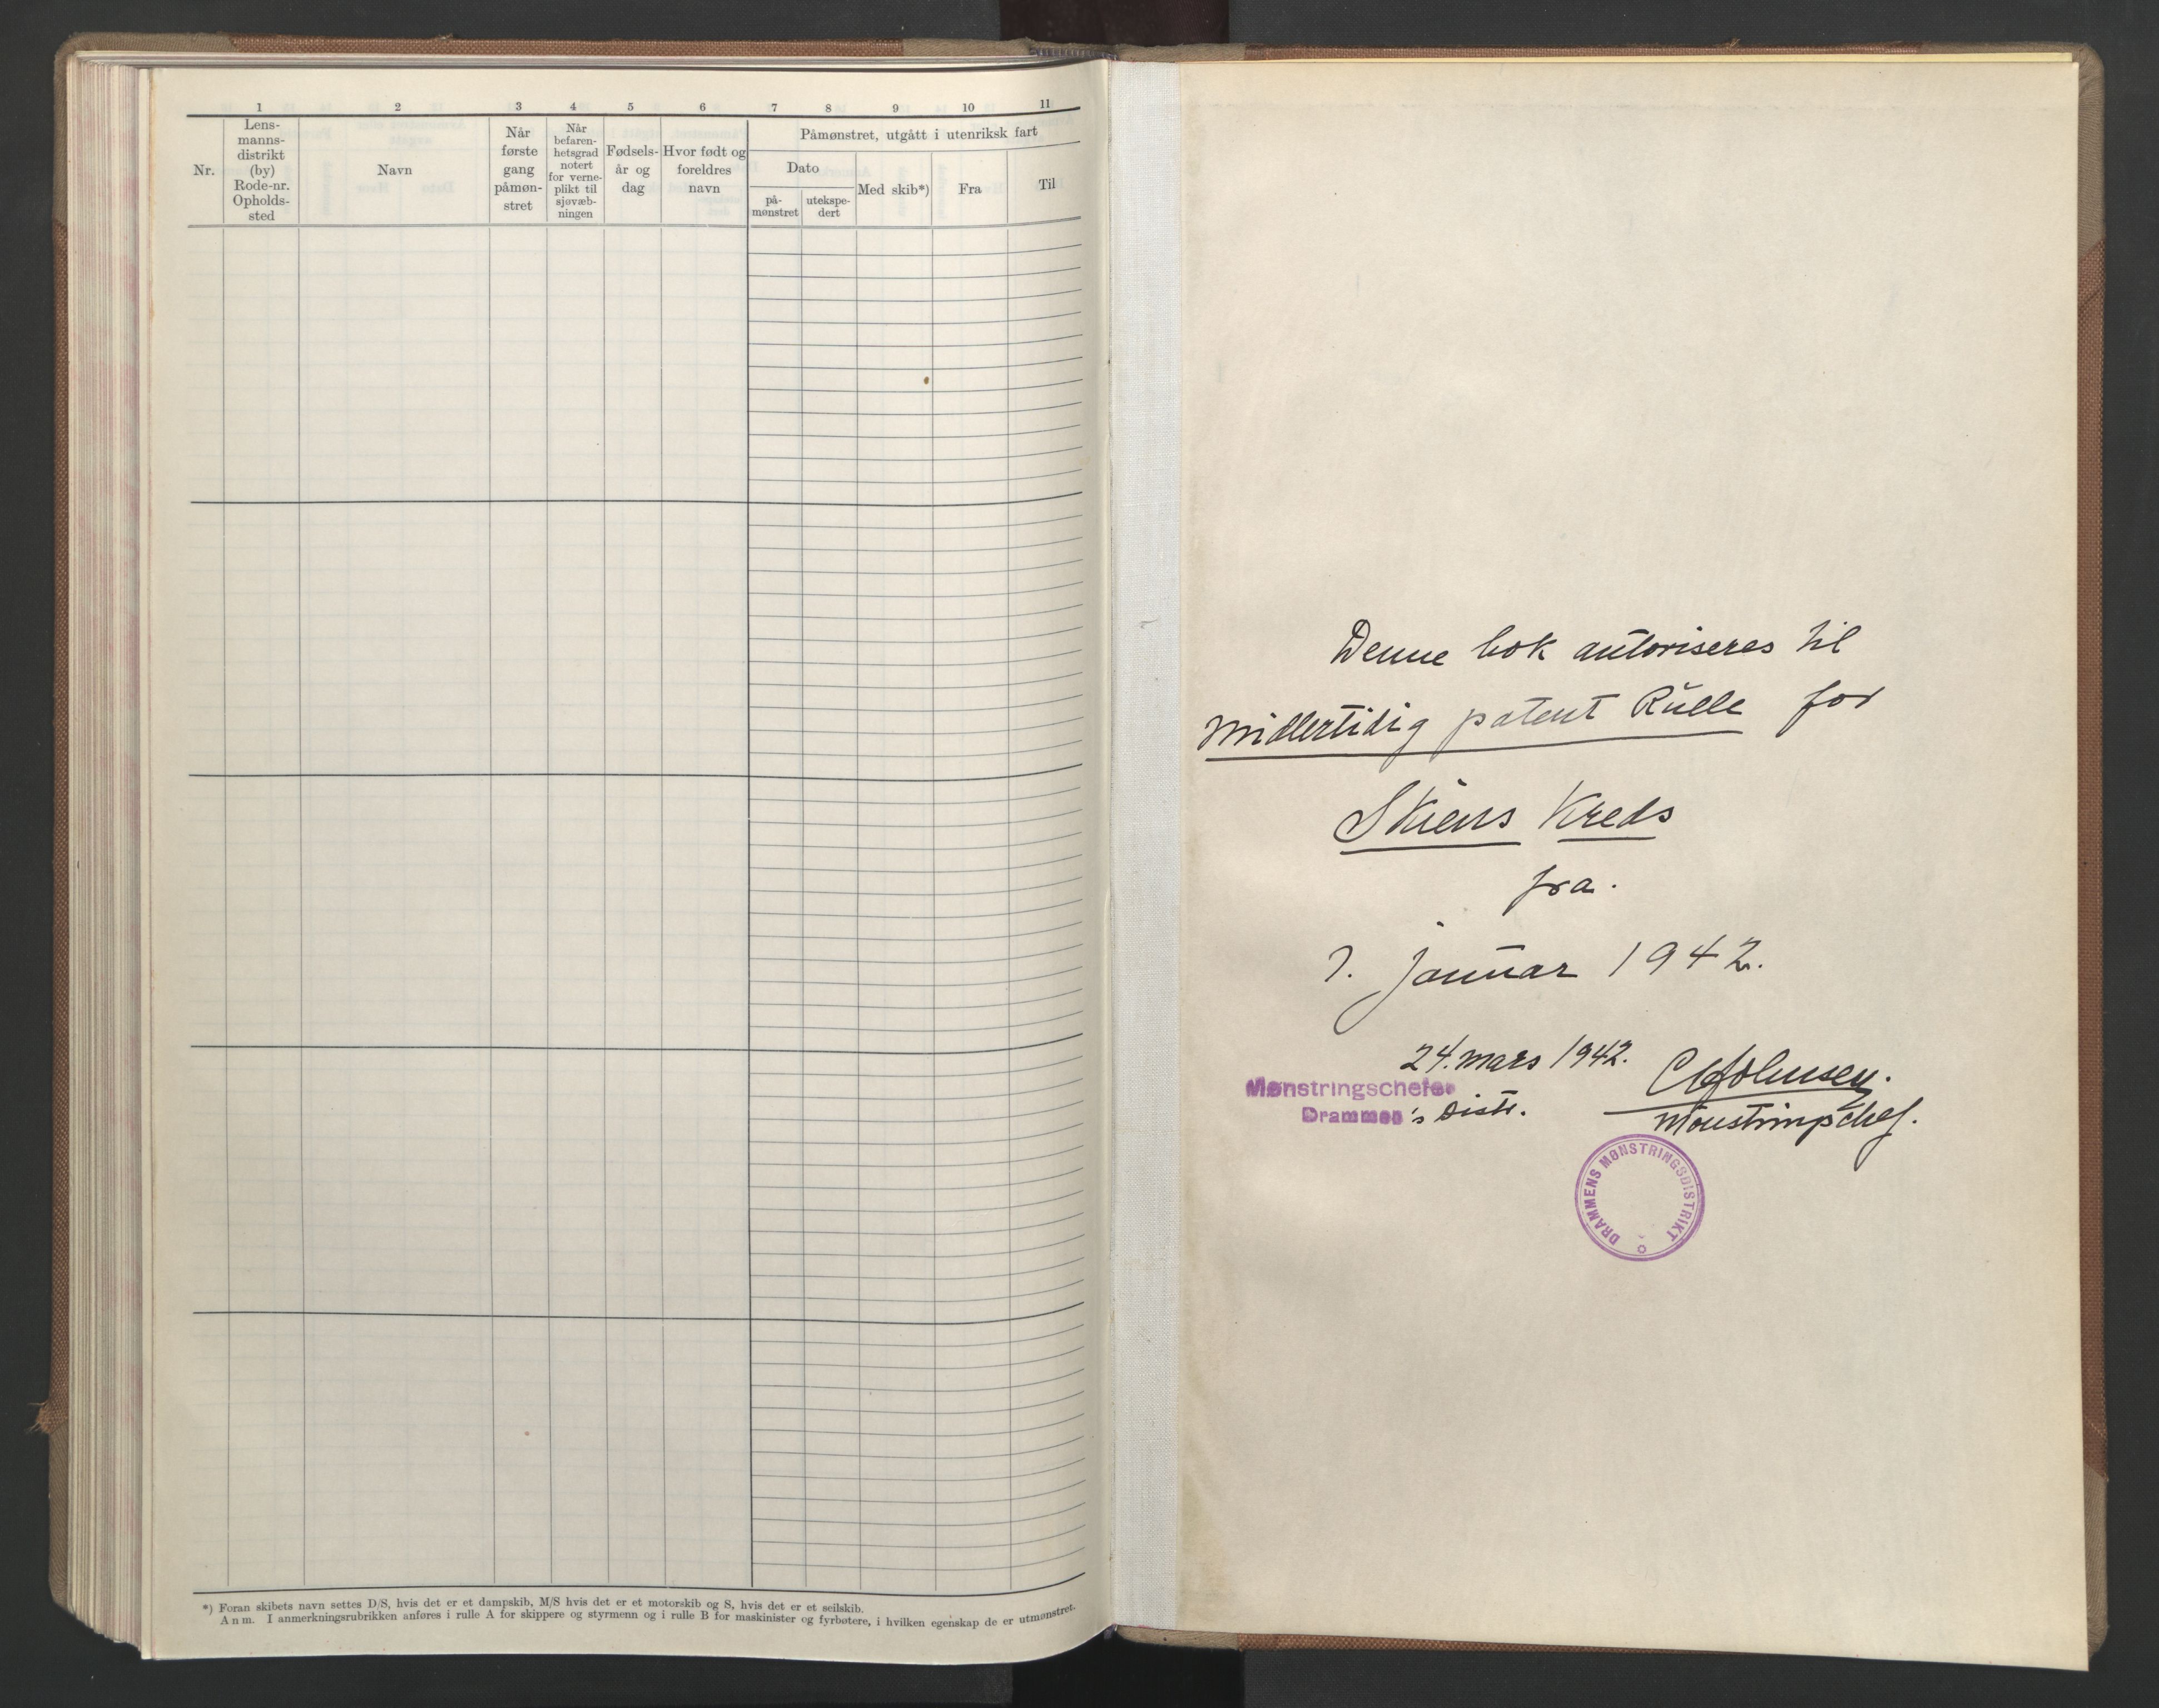 1 2 3 4 5 6 7 8 9 10 11
Nr.
Lens-
manns-
distrikt
(by)
Rode-nr.
Opholds-
sted
Navn
Når
første
gang
påmøn-
stret
Når
befaren-
hetsgrad
notert
for verne-
plikt til
sjøvæb-
ningen
Fødsels-
år og
dag
Hvor født og
foreldres
navn
Påmønstret, utgått i utenriksk fart
Dato
på-
mønstret
utekspe-
dert
Med skib*)
Fra
Til
*) Foran skibets navn settes D/S, hvis det er et dampskib, M/S hvis det er et motorskib og S, hvis det er et seilskib.
Anm. I anmerkningsrubrikken anføres i rulle A for skippere og styrmenn og i rulle B for maskinister og fyrbøtere, i hvilken egenskap de er utmønstret.
Denne bok autoriseres til
midlertidig patent Rulle for
Skiens Kreds
fra.
1. januar 1942.
24. mars 1942.
Mønstringschefen
Drammen's Distr.
Mønstringschef.
DRAMMENS MØNSTRINGSDISTRIKT